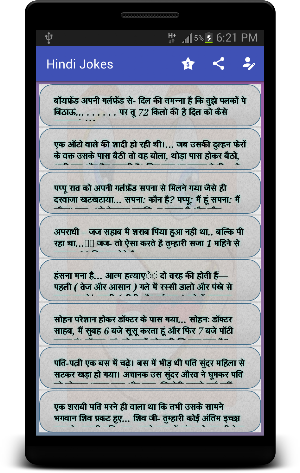 5% 6:21 PM
Hindi Jokes
बॉयफ्रेंड अपनी गर्लफ्रेंड से- दिल की तमन्ना है कि तुझे पलकों पे
बिठाऊं... . . . . . . पर तू 72 किलो की है दिल को कैसे
एक ऑटो वाले की शादी हो रही थी।... जब उसकी दुल्हन फेरों
के वक्त उसके पास बैठी तो वह बोला, थोड़ा पास होकर बैठो,
पप्पू रात को अपनी गर्लफ्रेंड सपना से मिलने गया जैसे ही
दरवाजा खटखटाया... सपना: कौन है? पप्पू: मैं हूं सपना: मैं
अपराधी जज साहब मैं शराब पिया हुआ नहीं था.. बल्कि पी
रहा था... जज- तो ऐसा करते हैं तुम्हारी सजा 1 महिने से
हंसना मना है... आत्म हत्याएं दो तरह की होती हैं—
पहली ( तेज और आसान ) गले में रस्सी डालो और पंखे से
सोहन परेशान होकर डॉक्टर के पास गया... सोहन: डॉक्टर
साहब, मैं सुबह 6 बजे सूसू करता हूं और फिर 7 बजे पॉटी
पति-पत्नी एक बस में चढ़े। बस में भीड़ थी पति सुंदर महिला से
सटकर खड़ा हो गया। अचानक उस सुंदर औरत ने घूमकर पति
एक शराबी पति मरने ही वाला था कि तभी उसके सामने
भगवान शिव प्रकट हुए... शिव जी- तुम्हारी कोई अंतिम इच्छा